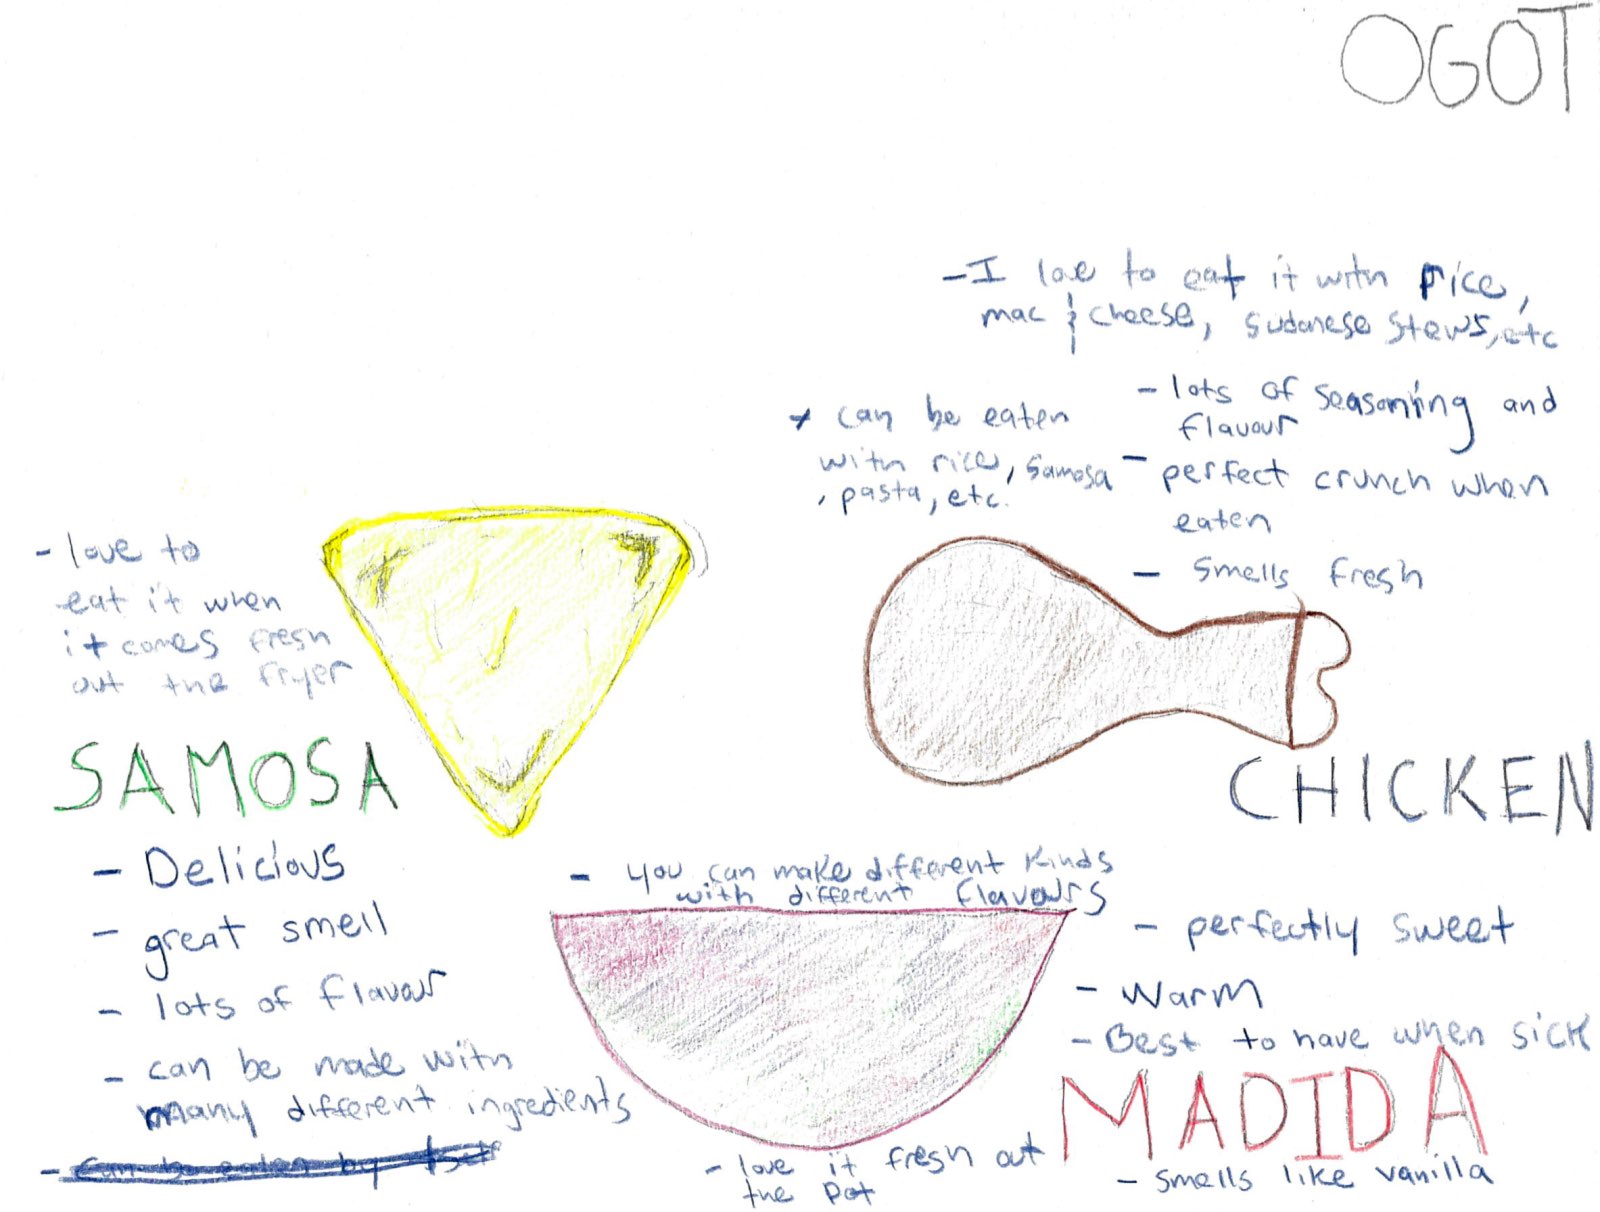 OGOT
- I love to eat it with rice,
mac & cheese, Sudanese stews, etc
- lots of seasoning and
flavour
- perfect crunch when
eaten
- smells fresh
+ can be eaten
with rice, samosa
, pasta, etc.
CHICKEN
- love to
eat it when
it comes fresh
out the fryer
SAMOSA
- Delicious
- great smell
- lots of flavour
- can be made with
many different ingredients
- can be eaten by itself
- you can make different kinds
with different flavours
- perfectly sweet
- Warm
- Best to have when sick
MADIDA
- smells like vanilla
- love it fresh out
the pot